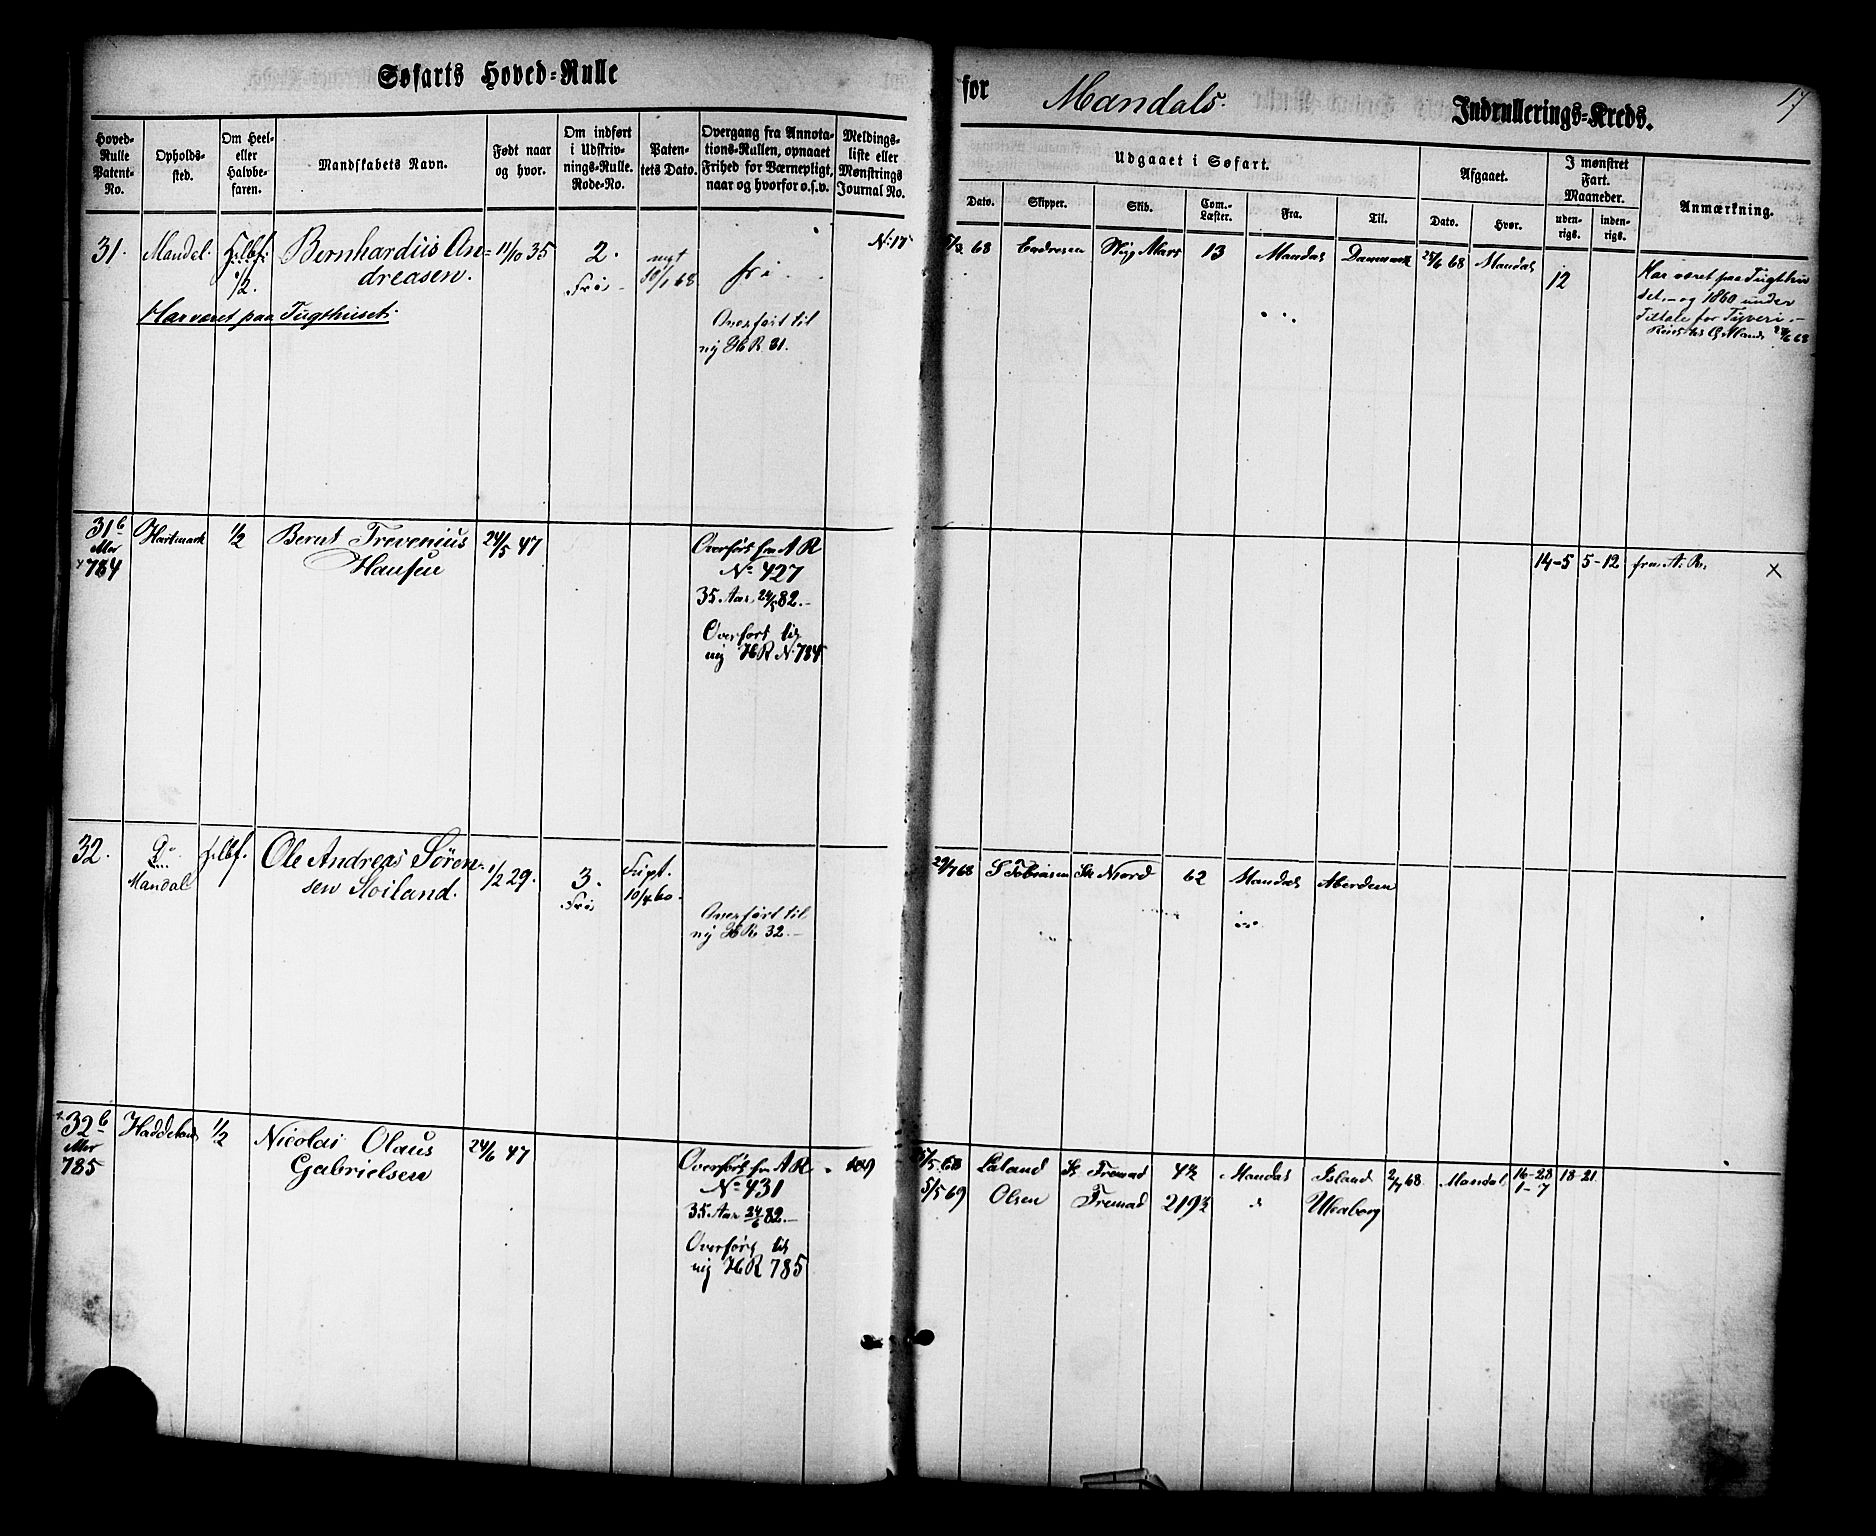 Søfarts Hoved=Rulle
for Mandals. Indrullerings=Kreds. 17
Hoved-Rulle Patent-No.
Opholds-sted.
Om Heel- eller Halvbe-faren.
Mandskabets Navn.
Født naar og hvor.
Om indført i Udskriv-nings-Rulle. Rode-No.
Paten-tets Dato.
Overgang fra Annota-tions-Rullen, opnaaet Frihed for Værnepligt, naar og hvorfor o.s.v.
Meldings-liste eller Mønstrings Journal No.
Udgaaet i Søfart.
Dato. Skipper. Skib. Com.-Læster. Fra. Til.
Afgaaet.
Dato. Hvor.
I mønstret Fart. Maaneder.
uden-rigs. inden-rigs.
Anmærkning.
31. Mandal. Bernhardus An= 11/10 35 2. nyt fri. N: 17
1/2. dreasen. Fri 10/1 68
Har været paa Tugthuset.
Overført til
ny HR 31.
68 Mars 13 Mandal Danmark 68 Mandal 12
Har været paa Tugthu
set. og 1860 under
Tiltale for Tyveri.
31b Hartmark 1/2 Bernt Trevenius 24/5 47 Overført fra AR
eller Hansen No 427
784 35 Aar 24/5 82.
Overført til
ny HR N: 784
14-5 5-12 fra A. R. x
32. Do f.lbf. Ole Andreas Søren= 1/2 29. 3.
Mandal sen Stoiland. Fri 10/4 60.
Overført til
ny HR 32.
29/7 68 S Tobiasen Sk Niord 62 Mandal Aberdeen
32b Haddeland 1/2 Nicolai Olaus 24/6 47 Overført fra AR 189
eller Gabrielsen No 431
785 35 Aar 24/6 82.
Overført til
ny HR 785
5/5 68 Laland Sk. Fremad Mandal Island 2/7 68. Mandal 16-28 18-21
5/5 69 Olsen Fremad 219 1/2 " Uleaborg 1-7